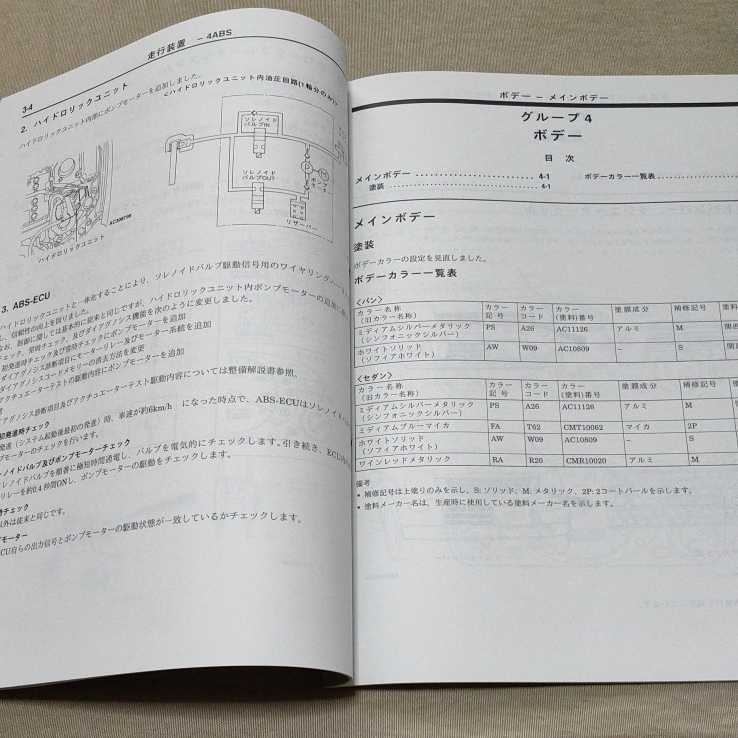 走行装置 － 4ABS
3-4
2. ハイドロリックユニット
ハイドロリックユニット内部にポンプモーターを追加しました。
<ハイドロリックユニット内油圧回路(1輪分のみ)>
ソレノイド
バルブIN
ソレノイド
バルブOUT
M
リザーバー
ハイドロリックユニット
3. ABS-ECU
ハイドロリックユニットと一体化することにより、ソレノイドバルブ駆動信号用のワイヤリングハー
、信頼性の向上を図りました。
なお、制御に関しては基本的に従来と同じですが、ハイドロリックユニット内ポンプモーターの追加に
チェック、常時チェック、及びダイアグノシス機能を次のように変更しました。
初発進時チェック及び常時チェックにポンプモーターを追加
ダイアグノシス診断項目にモーターリレー及びモーター系統を追加
ダイアグノシスコードメモリーの消去方法を変更
アクチュエーターテストの駆動内容にポンプモーターを追加
アグノシス診断項目及びアクチュエーターテスト駆動内容については整備解説書参照。
初発進時チェック
発進（システム起動後最初の発進）時、車速が約6km/h になった時点で、ABS-ECUはソレノイドバ
プモーターのチェックを行います。
ソレノイドバルブ及びポンプモーターチェック
ソレノイドバルブを順番に極短時間通電し、バルブを電気的にチェックします。引き続き、ECU
リレーを約0.4 秒間ONし、ポンプモーターの駆動をチェックします。
時チェック
以外は従来と同じです。
プモーター
CU自らの出力信号とポンプモーターの駆動状態が一致しているかチェックします。
ボデー － メインボデー
グループ 4
ボデー
目 次
メインボデー 4-1
塗装 4-1
ボデーカラー一覧表
メインボデー
塗装
ボデーカラーの設定を見直しました。
ボデーカラー一覧表
<バン>
カラー名称 カラー カラー カラー 塗膜成分 補修記号 塗料
（旧カラー名称） 記 号 コード (塗料)番号
ミディアムシルバーメタリック PS A26 AC11126 アルミ M 関西
（シンフォニックシルバー）
ホワイトソリッド AW W09 AC10809 － S 関
（ソフィアホワイト）
<セダン>
カラー名称 カラー カラー カラー 塗膜成分 補修記号
（旧カラー名称） 記 号 コード (塗料)番号
ミディアムシルバーメタリック PS A26 AC11126 アルミ M
（シンフォニックシルバー）
ミディアムブルーマイカ FA T62 CMT10062 マイカ 2P
ホワイトソリッド AW W09 AC10809 － S
（ソフィアホワイト）
ワインレッドメタリック RA R20 CMR10020 アルミ M
備考
• 補修記号は上塗りのみを示し、S: ソリッド、M: メタリック、2P: 2コートパールを示します。
• 塗料メーカー名は、生産時に使用している塗料メーカー名を示します。